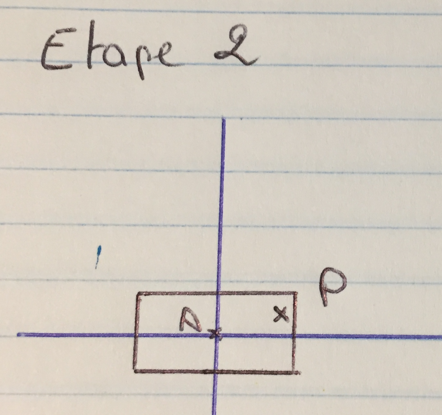 Etape 2
P
A